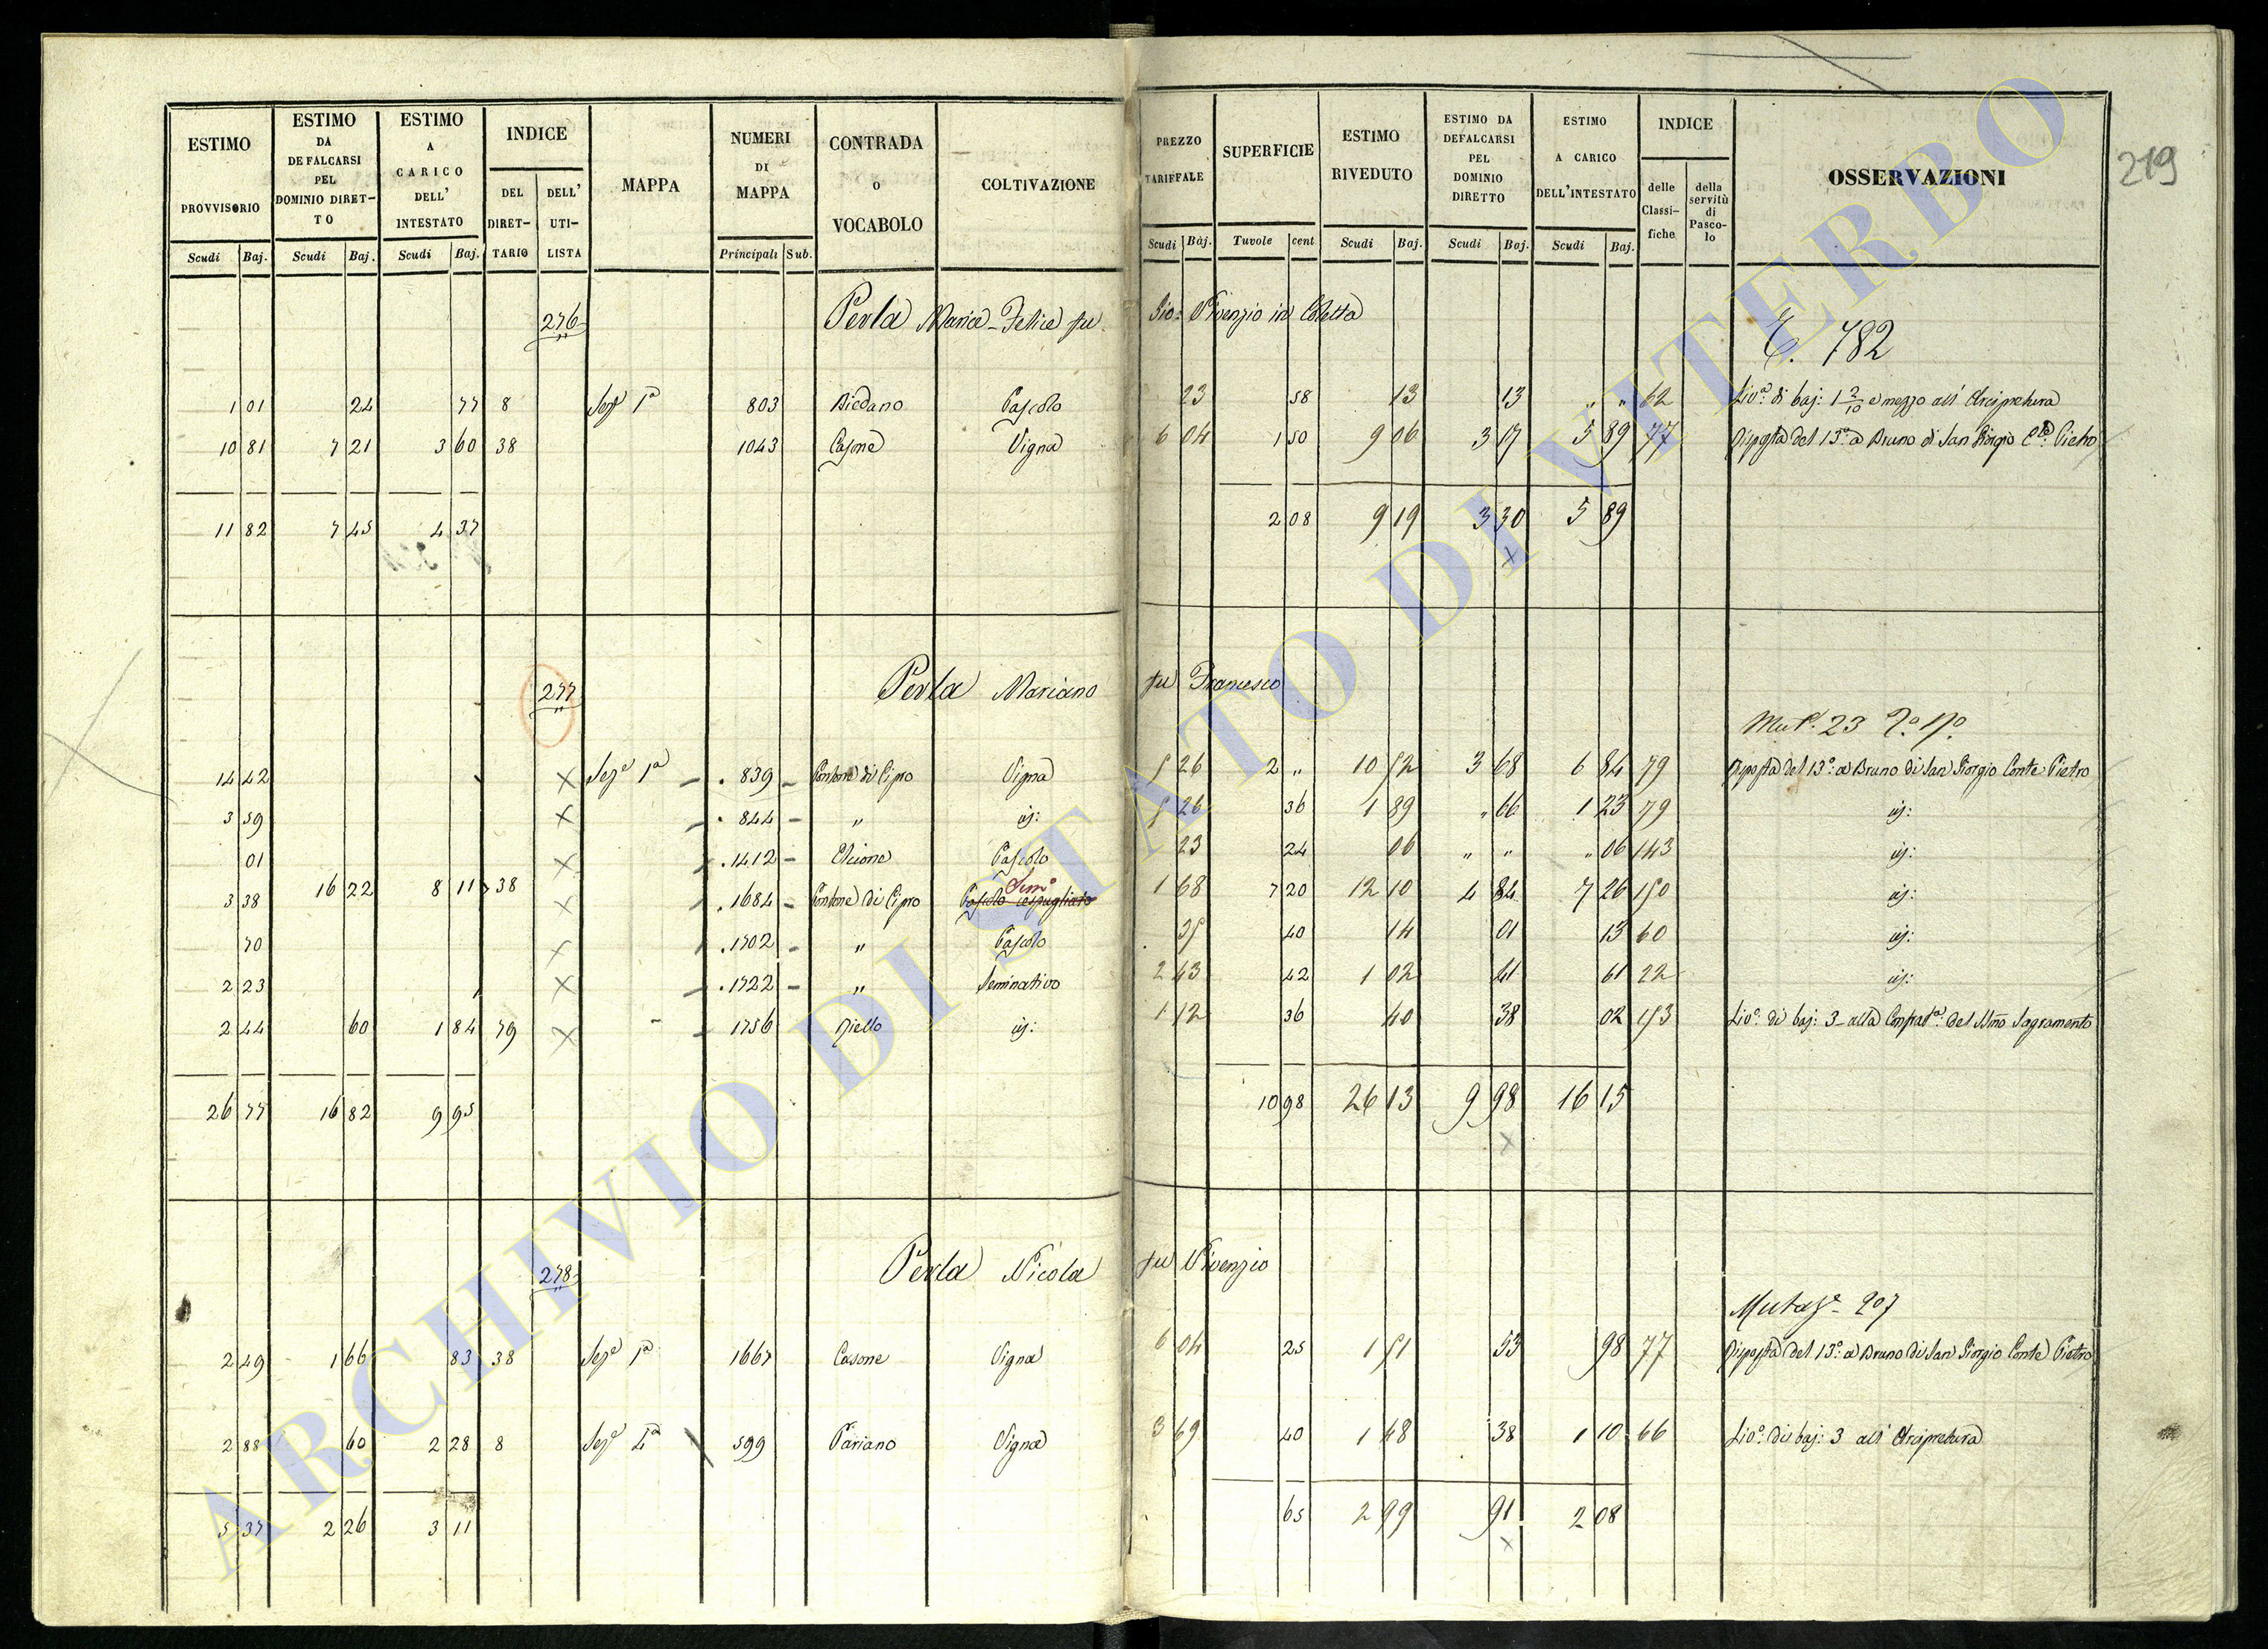 219
ESTIMO PROVVISORIO Scudi Baj.
ESTIMO DA DEFALCARSI PEL DOMINIO DIRET-TO Scudi Baj.
ESTIMO A CARICO DELL' INTESTATO Scudi Baj.
INDICE DEL DIRET-TARIO DELL' UTI-LISTA
MAPPA
NUMERI DI MAPPA Principali Sub.
CONTRADA O VOCABOLO
COLTIVAZIONE
PREZZO TARIFFALE Scudi Baj.
SUPERFICIE Tavole cent
ESTIMO RIVEDUTO Scudi Baj.
ESTIMO DA DEFALCARSI PEL DOMINIO DIRETTO Scudi Baj.
ESTIMO A CARICO DELL'INTESTATO Scudi Baj.
INDICE delle Classi-fiche della servitù di Pasco-lo
OSSERVAZIONI
276 Perla Maria Felice fu Gio: Vivenzio in Coletta
E. 782
1 01 24 77 8 Sez.e 1a 803 Biedano Pascolo 23 58 13 13 " " 62 Liv.o di baj: 1 2/10 e mezzo all' Arcipretura
10 81 7 21 3 60 38 1043 Casone Vigna 6 04 1 50 9 06 3 17 5 89 77 Risposta del 13.o a Bruno di San Giorgio C.te Pietro
11 82 7 45 4 37 2 08 9 19 3 30 5 89
x
277 Perla Mariano fu Francesco
Mut.e 23
14 42 x Sez.e 1a 839 Cantone di Cipro Vigna 5 26 2 " 10 52 3 68 6 84 79 Risposta del 13.o a Bruno di San Giorgio Conte Pietro
3 59 x 844 " id: 5 26 36 1 89 " 66 1 23 79 id:
01 x 1412 Elcione Pascolo 23 24 06 " " " 06 143 id:
3 38 16 22 8 11 38 x 1684 Cantone di Cipro Pascolo cespugliato Sem.o 1 68 7 20 12 10 4 84 7 26 150 id:
70 x 1702 " Pascolo 35 40 14 01 13 60 id:
2 23 x 1722 " Seminativo 2 43 42 1 02 41 61 22 id:
2 44 60 1 84 79 x 1756 Riello id: 1 12 36 40 38 02 153 Liv.o di baj: 3 alla Confrat.a del SSmo Sagramento
26 77 16 82 9 95 10 98 26 13 9 98 16 15
x
278 Perla Nicola fu Vivenzio
Mutaz.e 207
2 49 1 66 83 38 Sez.e 1a 1667 Casone Vigna 6 04 25 1 51 53 98 77 Risposta del 13.o a Bruno di San Giorgio Conte Pietro
2 88 60 2 28 8 Sez.e 4a 599 Pariano Vigna 3 69 40 1 48 38 1 10 66 Liv.o di baj: 3 all' Arcipretura
5 37 2 26 3 11 65 2 99 91 2 08
x
ARCHIVIO DI STATO DI VITERBO